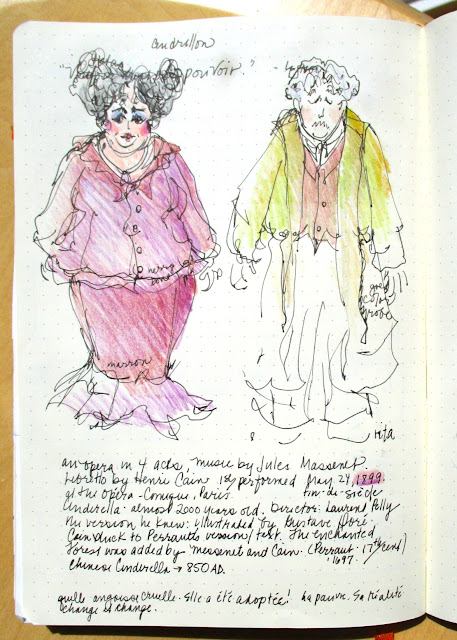 Cendrillon
pouvoir."
marron
gold
color
robe
rita
an opera in 4 acts, music by Jules Massenet
Libretto by Henri Cain 1st performed May 24, 1899.
at the Opera-Comique, Paris. fin-de-siècle
Cinderella: almost 2000 years old. Director: Laurent Pelly
his version he knew: illustrated by Gustave Doré.
Cain stuck to Perraults version/text. The enchanted
forest was added by Messenet and Cain. (Perraut - 17th
1697.
Chinese Cinderella → 850 AD.
quelle angoisse cruelle. Elle a été adoptée! La pauvre. Sa réalité
change is change.